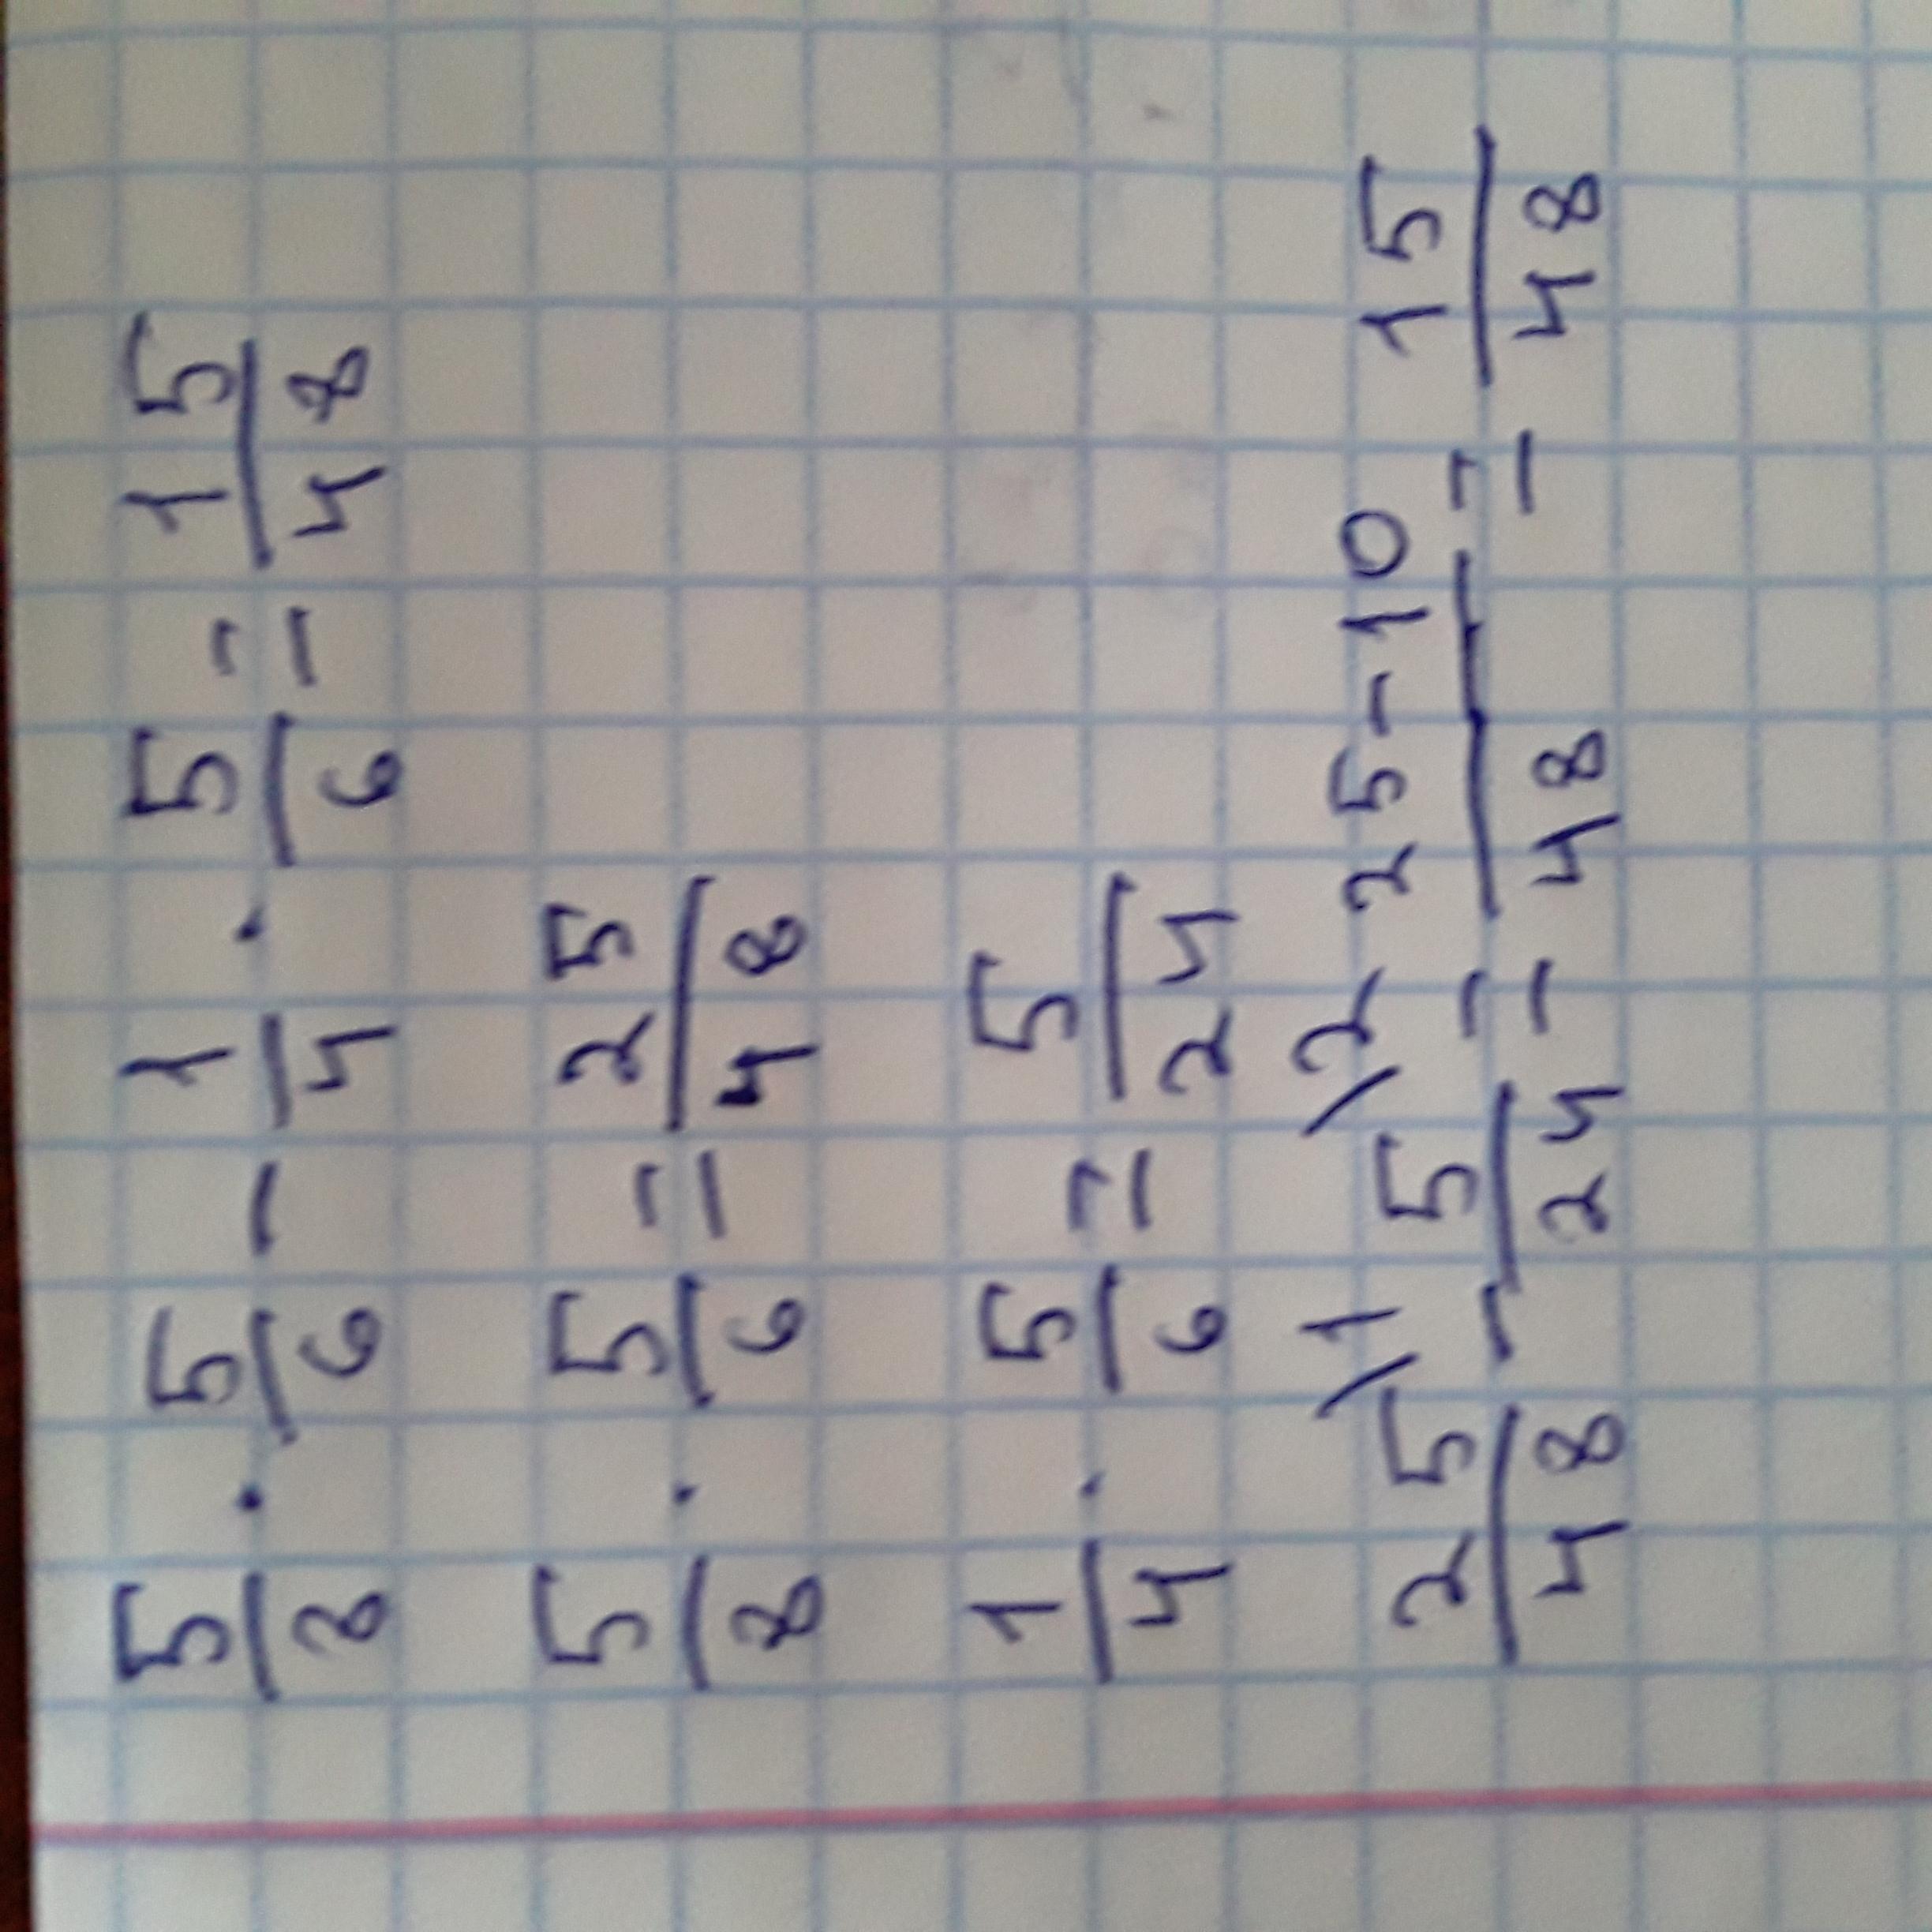 5/8 · 5/6 - 1/4 · 5/6 = 15/48
5/8 · 5/6 = 25/48
1/4 · 5/6 = 5/24
25/48 \1 - 5/24 \2 = 25-10/48 = 15/48